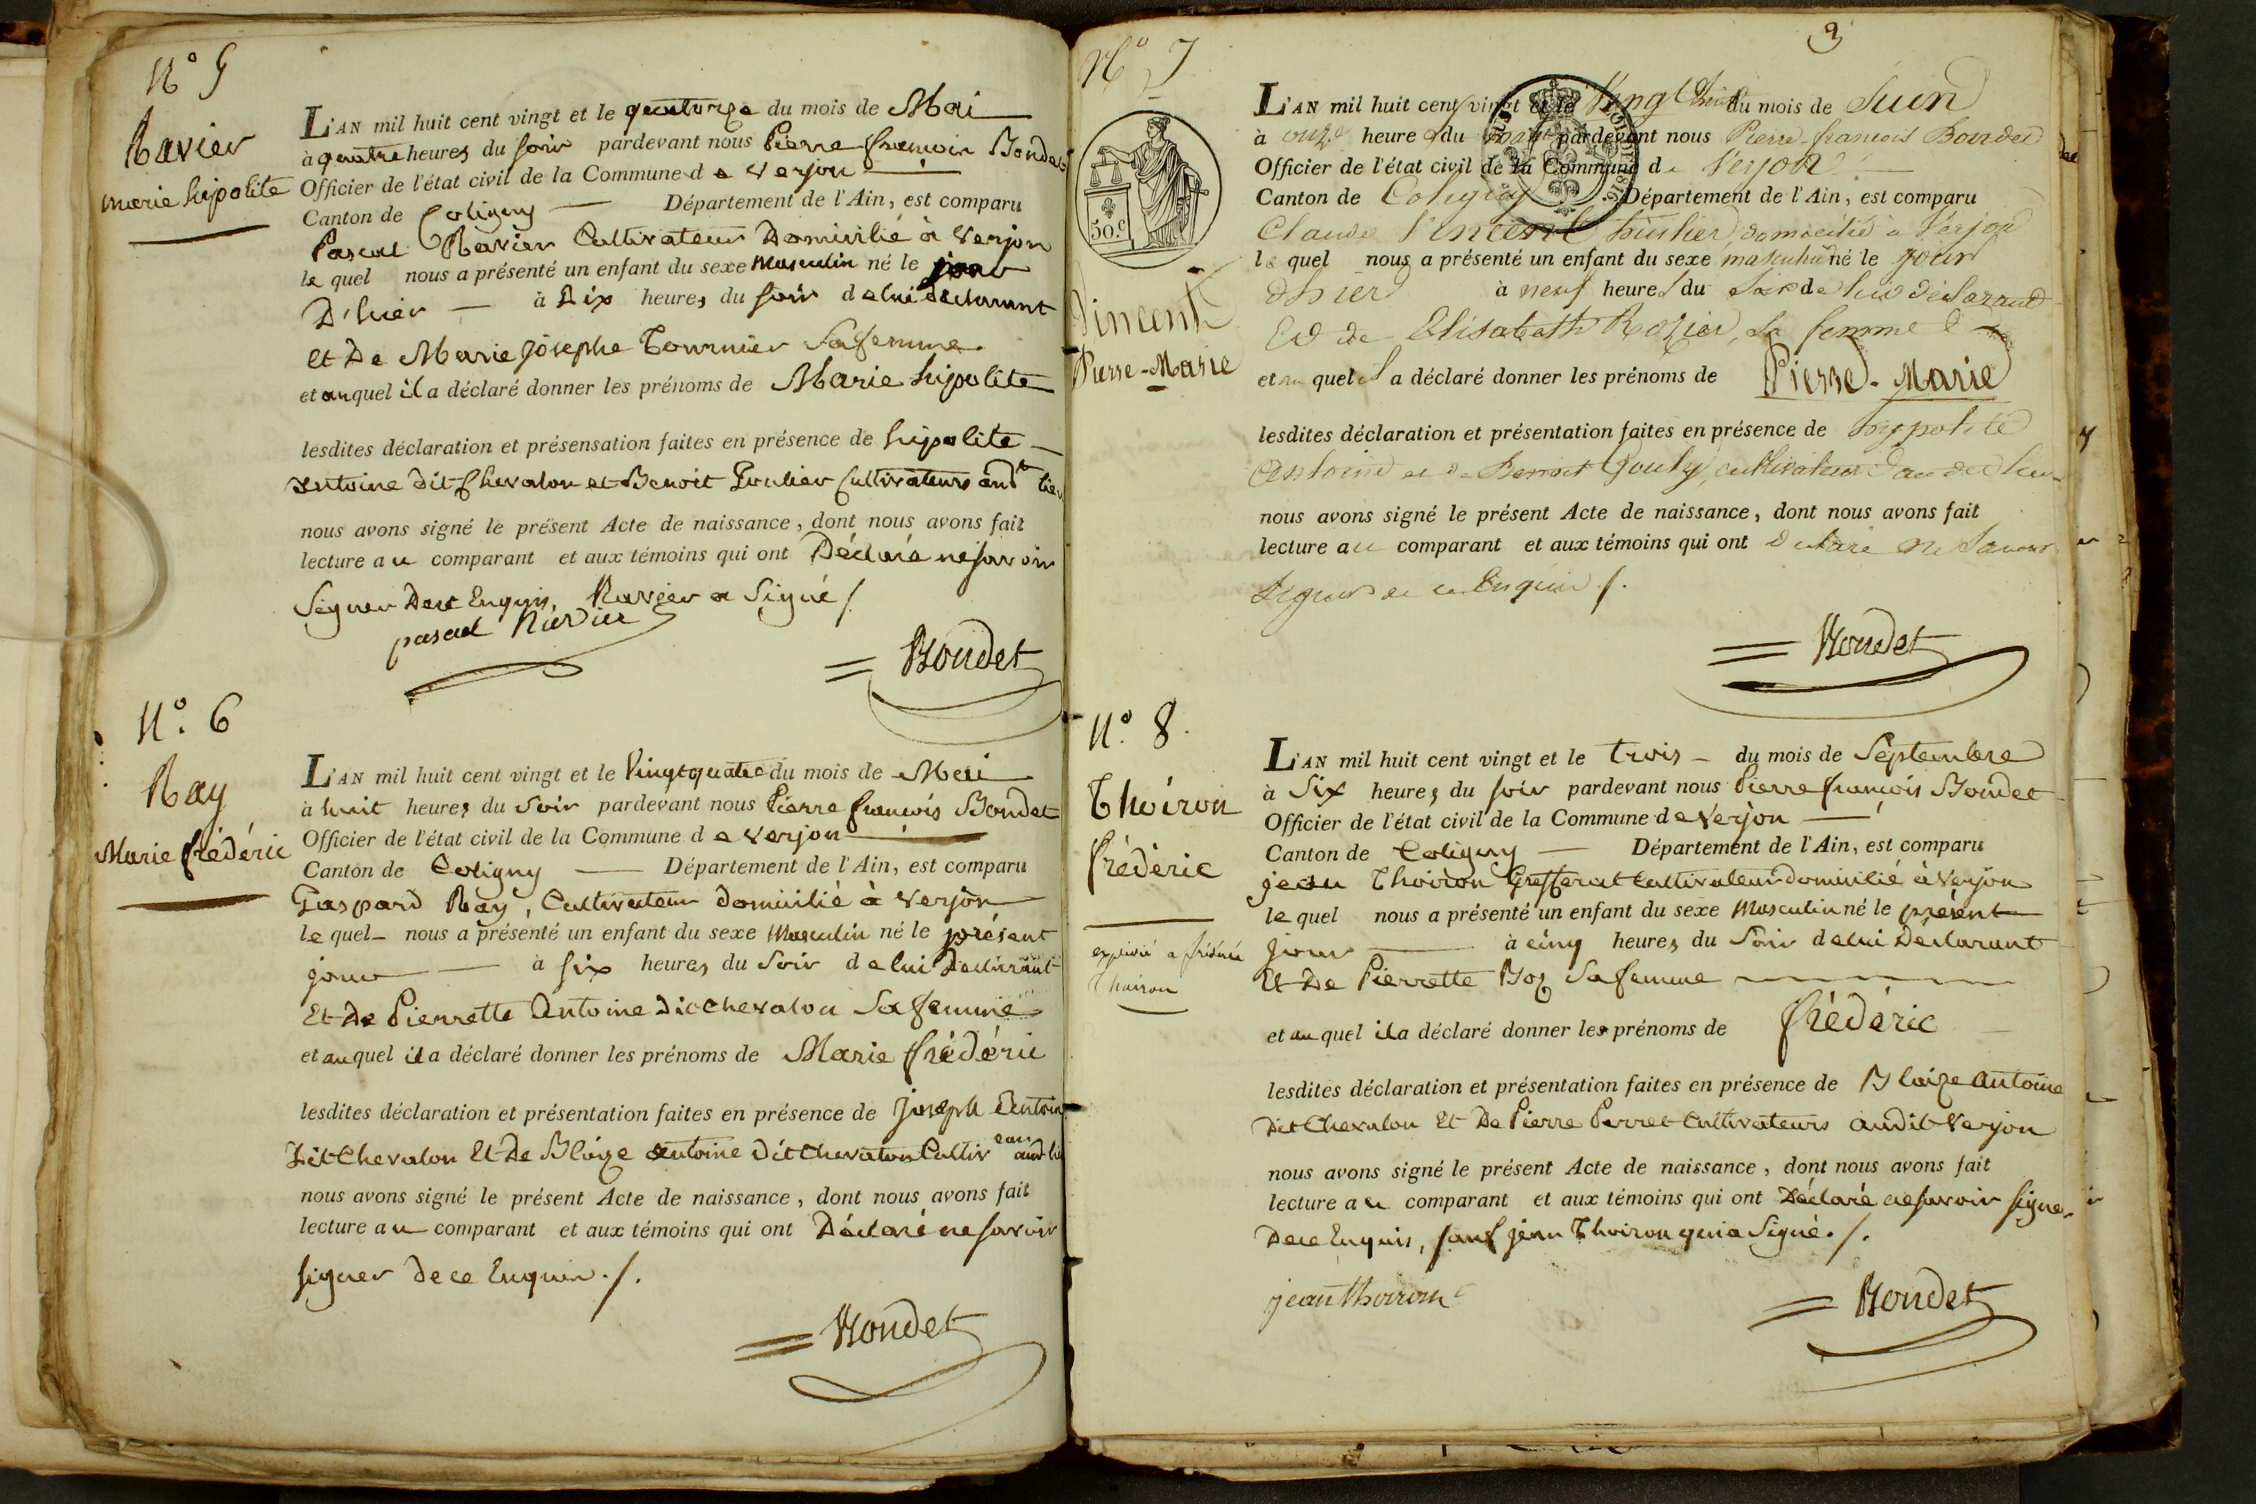 N° 5
Ravier
marie hipolite
L'AN mil huit cent vingt et le quatorze du mois de Mai
à quatre heures du soir pardevant nous Pierre françois Bondet
Officier de l'état civil de la Commune de Verjon
Canton de Coligny Département de l'Ain, est comparu
Pascal Ravier Cultivateur Domicilié à Verjon
lequel nous a présenté un enfant du sexe Masculin né le jour
D'hier à Dix heures du soir de lui déclarant
et De Marie Josephe Tournier Sa femme
et auquel il a déclaré donner les prénoms de Marie hipolite
lesdites déclaration et présensation faites en présence de hipolite
antoine dit Chevalon et Benoit Poulier Cultivateurs aud t lieu
nous avons signé le présent Acte de naissance, dont nous avons fait
lecture au comparant et aux témoins qui ont Déclaré ne savoir
Signer De ce Enquis, Ravier a Signé /.
pascal Ravier
Bondet
N°. 6
Ray
Marie frédéric
L'AN mil huit cent vingt et le Vingt quatre du mois de Mai
à huit heures du Soir pardevant nous Pierre françois Bondet
Officier de l'état civil de la Commune de Verjon
Canton de Coligny Département de l'Ain, est comparu
Gaspard Ray, Cultivateur domicilié à Verjon
lequel nous a présenté un enfant du sexe Masculin né le présent
jour à six heures du Soir de lui Déclarant
Et De Pierrette Antoine Dit Chevalon Sa femme
et auquel il a déclaré donner les prénoms de Marie frédéric
lesdites déclaration et présentation faites en présence de Joseph Antoine
Dit Chevalon Et De Blaize antoine Dit Chevalon Cultiv eurs aud lieu
nous avons signé le présent Acte de naissance, dont nous avons fait
lecture au comparant et aux témoins qui ont Déclaré ne savoir
signer de ce Enquis ./.
Bondet
3
N° 7
50.c
Vincent
Pierre-Marie
L'AN mil huit cent vingt et le Vingt huit du mois de Juin
à onze heures du pardevant nous Pierre-francois Bondet
Officier de l'état civil de la Commune de Verjon
Canton de Coligny Département de l'Ain, est comparu
Claude Vincent huilier, domicilié à Verjon
lequel nous a présenté un enfant du sexe masculin né le jour
d'hier à neuf heures du Soir de lui déclarant
Et de Elisabeth Rozier, sa femme
et au quel il a déclaré donner les prénoms de Pierre-Marie
lesdites déclaration et présentation faites en présence de hypolite
Antoine et de Benoit Pouly, cultivateurs au dit lieu
nous avons signé le présent Acte de naissance, dont nous avons fait
lecture au comparant et aux témoins qui ont déclaré ne Savoir
Signer de ce Enquis /.
Bondet
N°. 8.
Thoiron
frédéric
expédié a frédéric
Thoiron
L'AN mil huit cent vingt et le trois du mois de Septembre
à Six heures du soir pardevant nous Pierre françois Bondet
Officier de l'état civil de la Commune de Verjon
Canton de Coligny Département de l'Ain, est comparu
jean Thoiron Grefferat Cultivateur domicilié à Verjon
lequel nous a présenté un enfant du sexe Masculin né le présent
jour à cinq heures du Soir de lui Déclarant
Et De Pierrette Boz Sa femme
et auquel il a déclaré donner les prénoms de frédéric
lesdites déclaration et présentation faites en présence de Blaize antoine
Dit Chevalon Et De Pierre Perret Cultivateurs audit Verjon
nous avons signé le présent Acte de naissance, dont nous avons fait
lecture au comparant et aux témoins qui ont Déclaré ne savoir signer
De ce Enquis, sauf jean Thoiron qui a Signé ./.
jean thoiron
Bondet